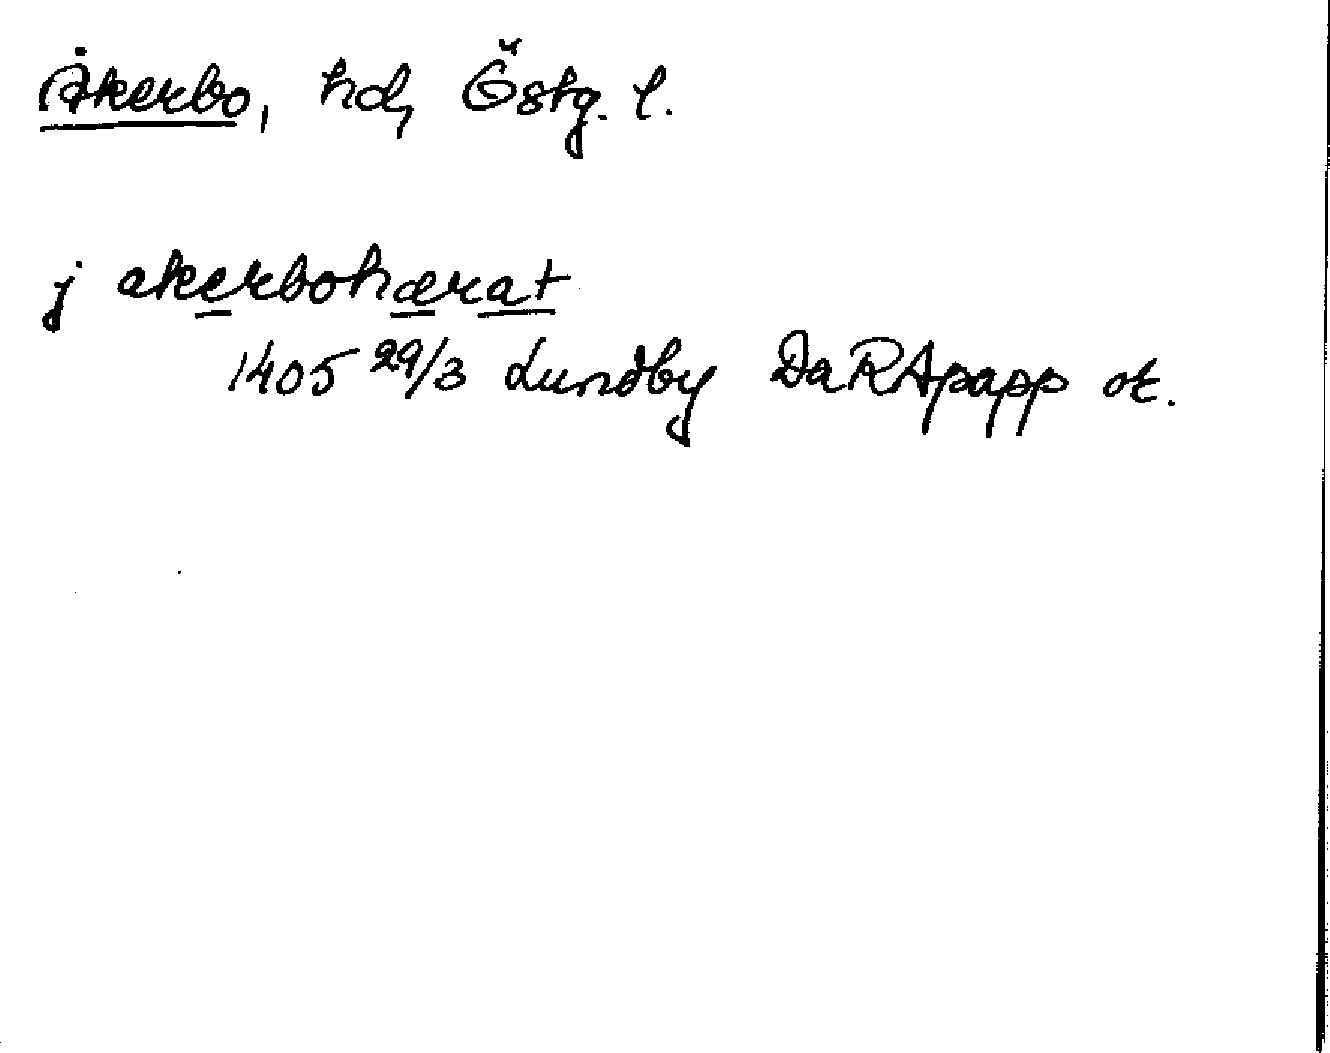 Åkerbo, hd, Östg. l.
j akerbohærat
1405 29/3 Lundby DaRApapp ot.